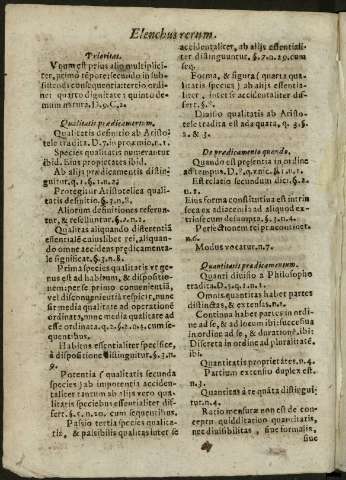 Elenchus rerum.
Prioritas.
Vnum est prius alio multiplici-
ter, primo tēpore; secundo in sub-
sistendi consequentia; tertio ordi-
ne; quarto dignitate; quinto de-
mum natura. D.9.C.2.
Qualitatis prædicamentum.
Qualitatis definitio ab Aristo-
tele tradita. D.7. in proœmio, n.1.
Species qualitatis numerantur
ibid. Eius proprietates ibid.
Ab alijs prædicamentis distin-
guitur. q.1. §.1. n.22
Protegitur Aristotelica quali-
tatis definitio. §.2. n.8.
Aliorum definitiones referun-
tur, & refelluntur. §.2. n.1.
Qualitas aliquando differentiā
essentialē cuiuslibet rei, aliquan-
do omne accidens prædicamenta-
le significat. §.3. n.8.
Prima species qualitatis vt ge-
nus est ad habitum, & dispositio-
nem: per se primo convenientiā,
vel disconuenientiā respicit, nunc
sit media qualitate ad operationē
ordinata, nunc media qualitate ad
esse ordinata. q.2. §.2. n.4. cum se-
quentibus.
Habitus essentialiter specifice,
à dispositione distinguitur. §.3. n.
9.
Potentia (qualitatis secunda
species) ab impotentia acciden-
taliter tantum ab alijs vero qua-
litatis speciebus essentialiter dif-
fert. §.5. n.20. cum sequentibus.
Passio tertia species qualita-
tis, & paisibilis qualitas inter se
accidentaliter, ab alijs essentiali-
ter distinguuntur. §.7. n.29. cum
seq.
Forma, & figura (quarta qua-
litatis species) ab alijs essentiali-
ter, inter se accidentaliter dif-
fert. §.8.
Diuisio qualitatis ab Aristo-
tele tradita est adæquata. q.3. §.
2. & 3.
De prædicamento quando.
Quando est præsentia in ordine
ad tempus. D.7. q.vnic. §.1. n.1.
Est relatio secundum dici. §.2.
n.1.
Eius forma constitutiua est intrin-
seca ex adiacentia ad aliquod ex-
trinsecum desumpta. §.3. n.4.
Perfectionem recipit continuē.
n.6.
Modus vocatur. n.7.
Quantitatis prædicamentum.
Quanti diuisio a Philosopho
tradita. D.5. q.1. n.1.
Omnis quantitas habet partes
distinctas, & extensas. n.1.
Continua habet partes in ordi-
ne ad se, & ad locum ibi: successiua
in ordine ad se, & durationē, ibi:
Discreta in ordine ad pluralitatē.
ibi.
Quantitatis proprietates. n.4.
Partium extensio duplex est.
n.3.
Quantitas à re quāta distingui-
tur. n.4.
Ratio mensuræ non est de con-
ceptu quidditatiuo quantitatis,
nec diuisibilitas, siue formalis,
siue